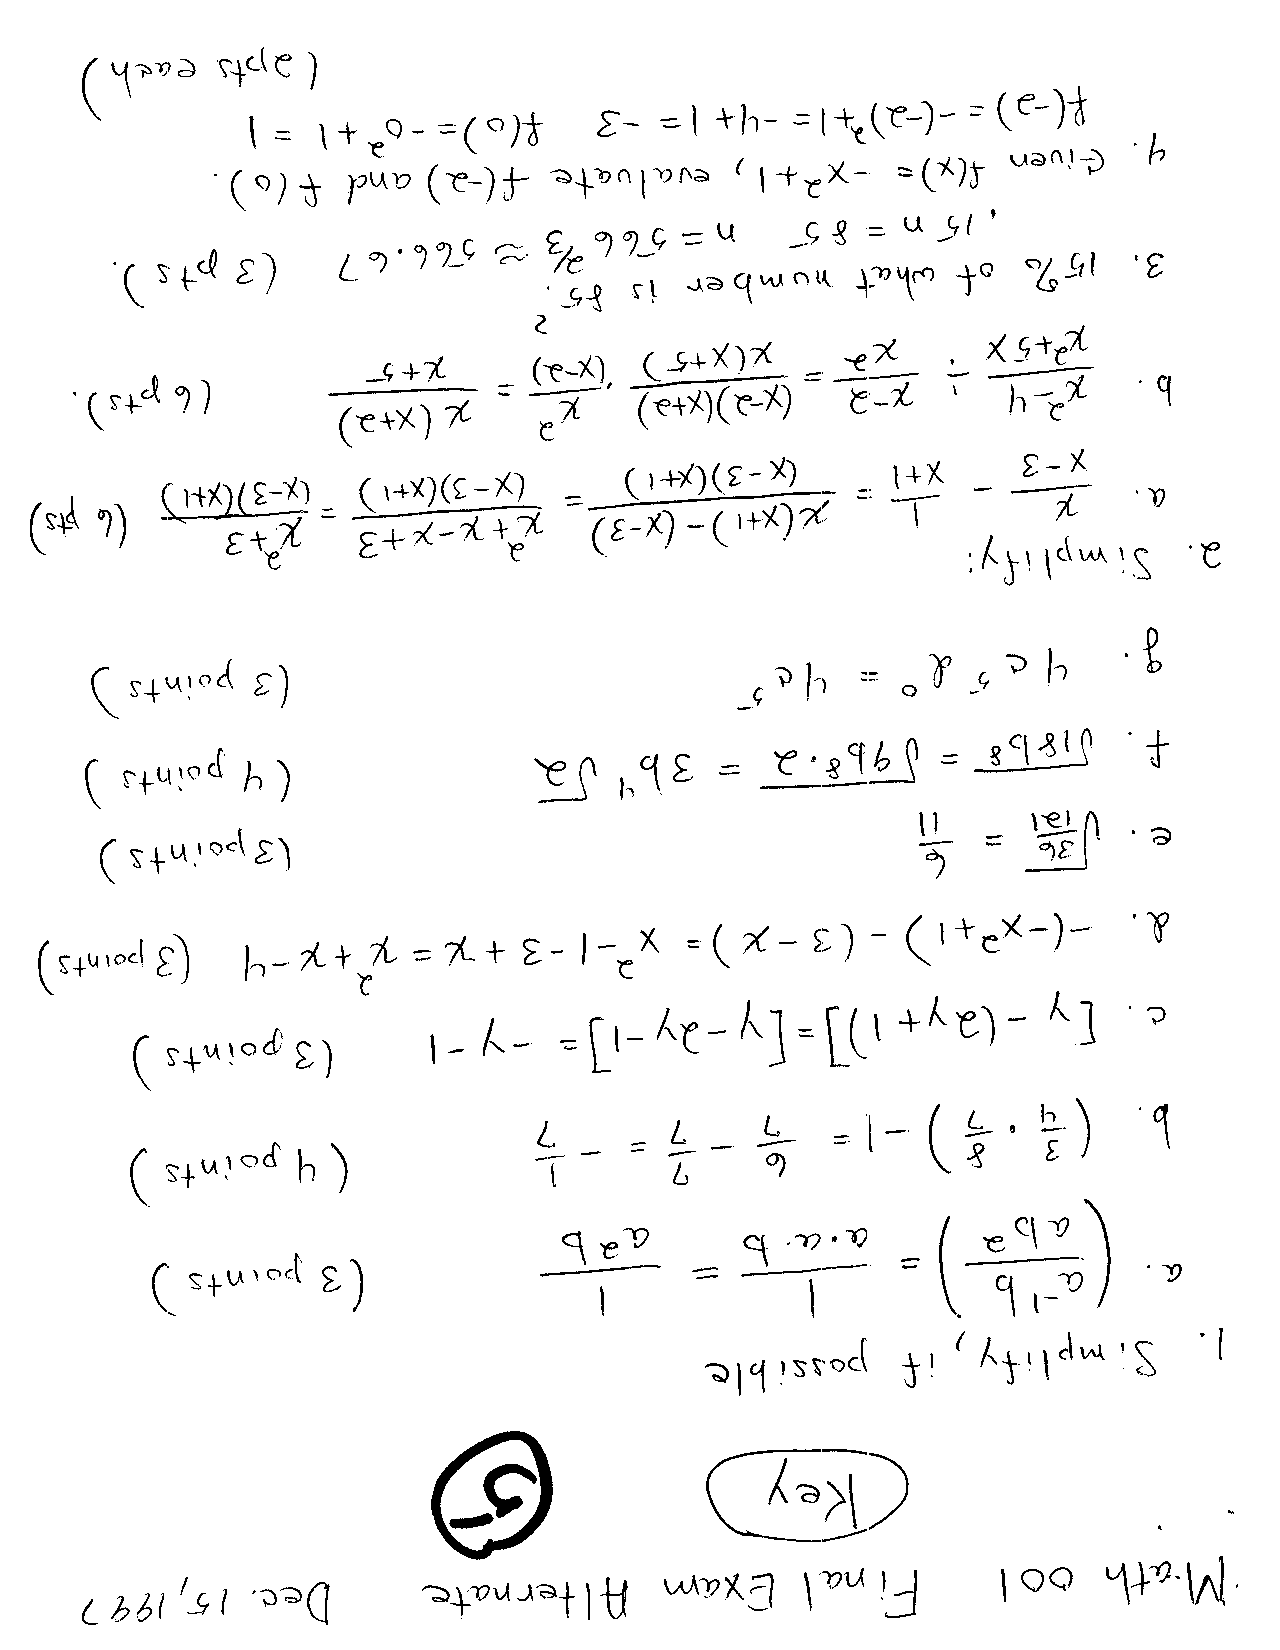 Math 001 Final Exam Alternate Dec. 15, 1997
Key 5
1. Simplify, if possible
a. (a⁻¹b / ab²) = 1 / a·a·b = 1 / a²b (3 points)
b. (3/4 · 8/7) - 1 = 6/7 - 7/7 = - 1/7 (4 points)
c. [y - (2y+1)] = [y - 2y - 1] = -y - 1 (3 points)
d. -(-x²+1) - (3-x) = x² - 1 - 3 + x = x² + x - 4 (3 points)
e. √(36/121) = 6/11 (3 points)
f. √(18b⁸) = √(9b⁸·2) = 3b⁴√2 (4 points)
g. 4c⁵d⁰ = 4c⁵ (3 points)
2. Simplify:
a. x/(x-3) - 1/(x+1) = (x(x+1) - (x-3))/((x-3)(x+1)) = (x²+x-x+3)/((x-3)(x+1)) = (x²+3)/((x-3)(x+1)) (6 pts)
b. (x²-4)/(x²+5x) ÷ (x-2)/x² = ((x-2)(x+2))/(x(x+5)) · x²/(x-2) = (x(x+2))/(x+5) (6 pts).
3. 15% of what number is 85?
.15n = 85 n = 566 2/3 ≈ 566.67 (3 pts).
4. Given f(x) = -x²+1, evaluate f(-2) and f(0).
f(-2) = -(-2)²+1 = -4+1 = -3 f(0) = -0²+1 = 1
(2pts each)